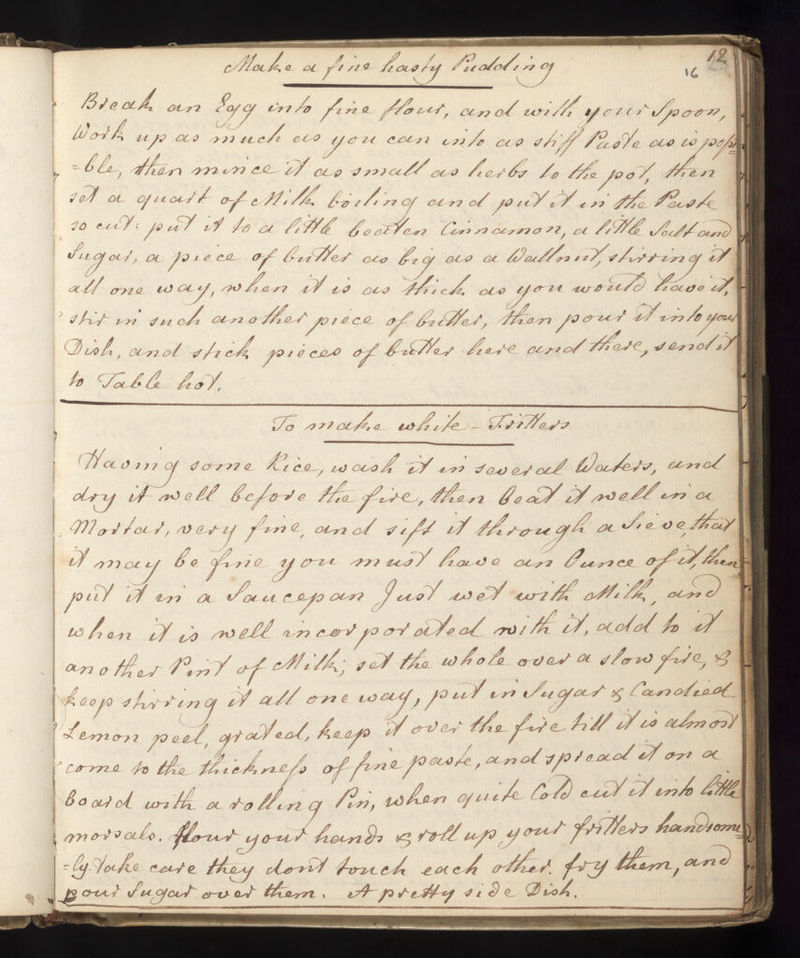 12
16
Make a fine hasty Pudding
Break an Egg into fine flour, and with your Spoon,
Work up as much as you can into as stiff Paste as is poſsi=
=ble, then mince it as small as herbs to the pot, then
set a quart of Milk boiling and put it in the Paste
so cut: put it to a little beaten Cinnamon, a little Salt and
Sugar, a piece of butter as big as a Wallnut, stirring it
all one way, when it is as thick as you would have it,
stir in such another piece of butter, then pour it into your
Dish, and stick pieces of butter here and there, send it
to Table hot.
To make white - Fritters
Having some Rice, wash it in several Waters, and
dry it well before the fire, then beat it well in a
Mortar, very fine, and sift it through a Sieve, that
it may be fine you must have an Ounce of it, then
put it in a Saucepan Just wet with Milk, and
when it is well incorporated with it, add to it
another Pint of Milk; set the whole over a slow fire, &
keep stirring it all one way, put in Sugar & Candied
Lemon peel, grated, keep it over the fire till it is almost
come to the thickneſs of fine paste, and spread it on a
board with a rolling Pin, when quite Cold cut it into little
morsals. flour your hands & roll up your fritters handsome=
=ly. take care they dont touch each other. fry them, and
pour Sugar over them. A pretty side Dish.